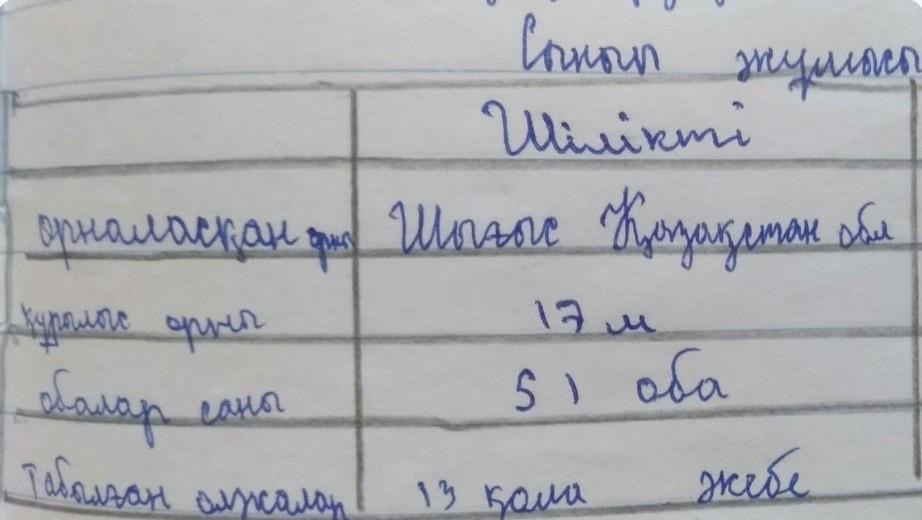 Сынып жұмысы
Шілікті
орналасқан орны Шығыс Қазақстан обл
құрылыс орны 17 м
обалар саны 51 оба
Табылған олжалар 13 қола жебе